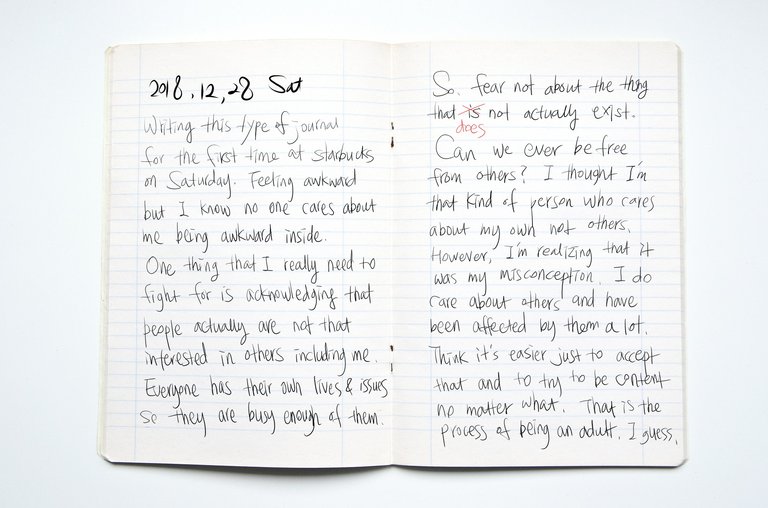 2018.12.28 Sat
Writing this type of journal
for the first time at starbucks
on Saturday. Feeling awkward
but I know no one cares about
me being awkward inside.
One thing that I really need to
fight for is acknowledging that
people actually are not that
interested in others including me.
Everyone has their own lives & issues
so they are busy enough of them.
So. fear not about the thing
that is not actually exist.
does
Can we ever be free
from others? I thought I'm
that kind of person who cares
about my own not others.
However, I'm realizing that it
was my misconception. I do
care about others and have
been affected by them a lot.
Think it's easier just to accept
that and to try to be content
no matter what. That is the
process of being an adult. I guess.